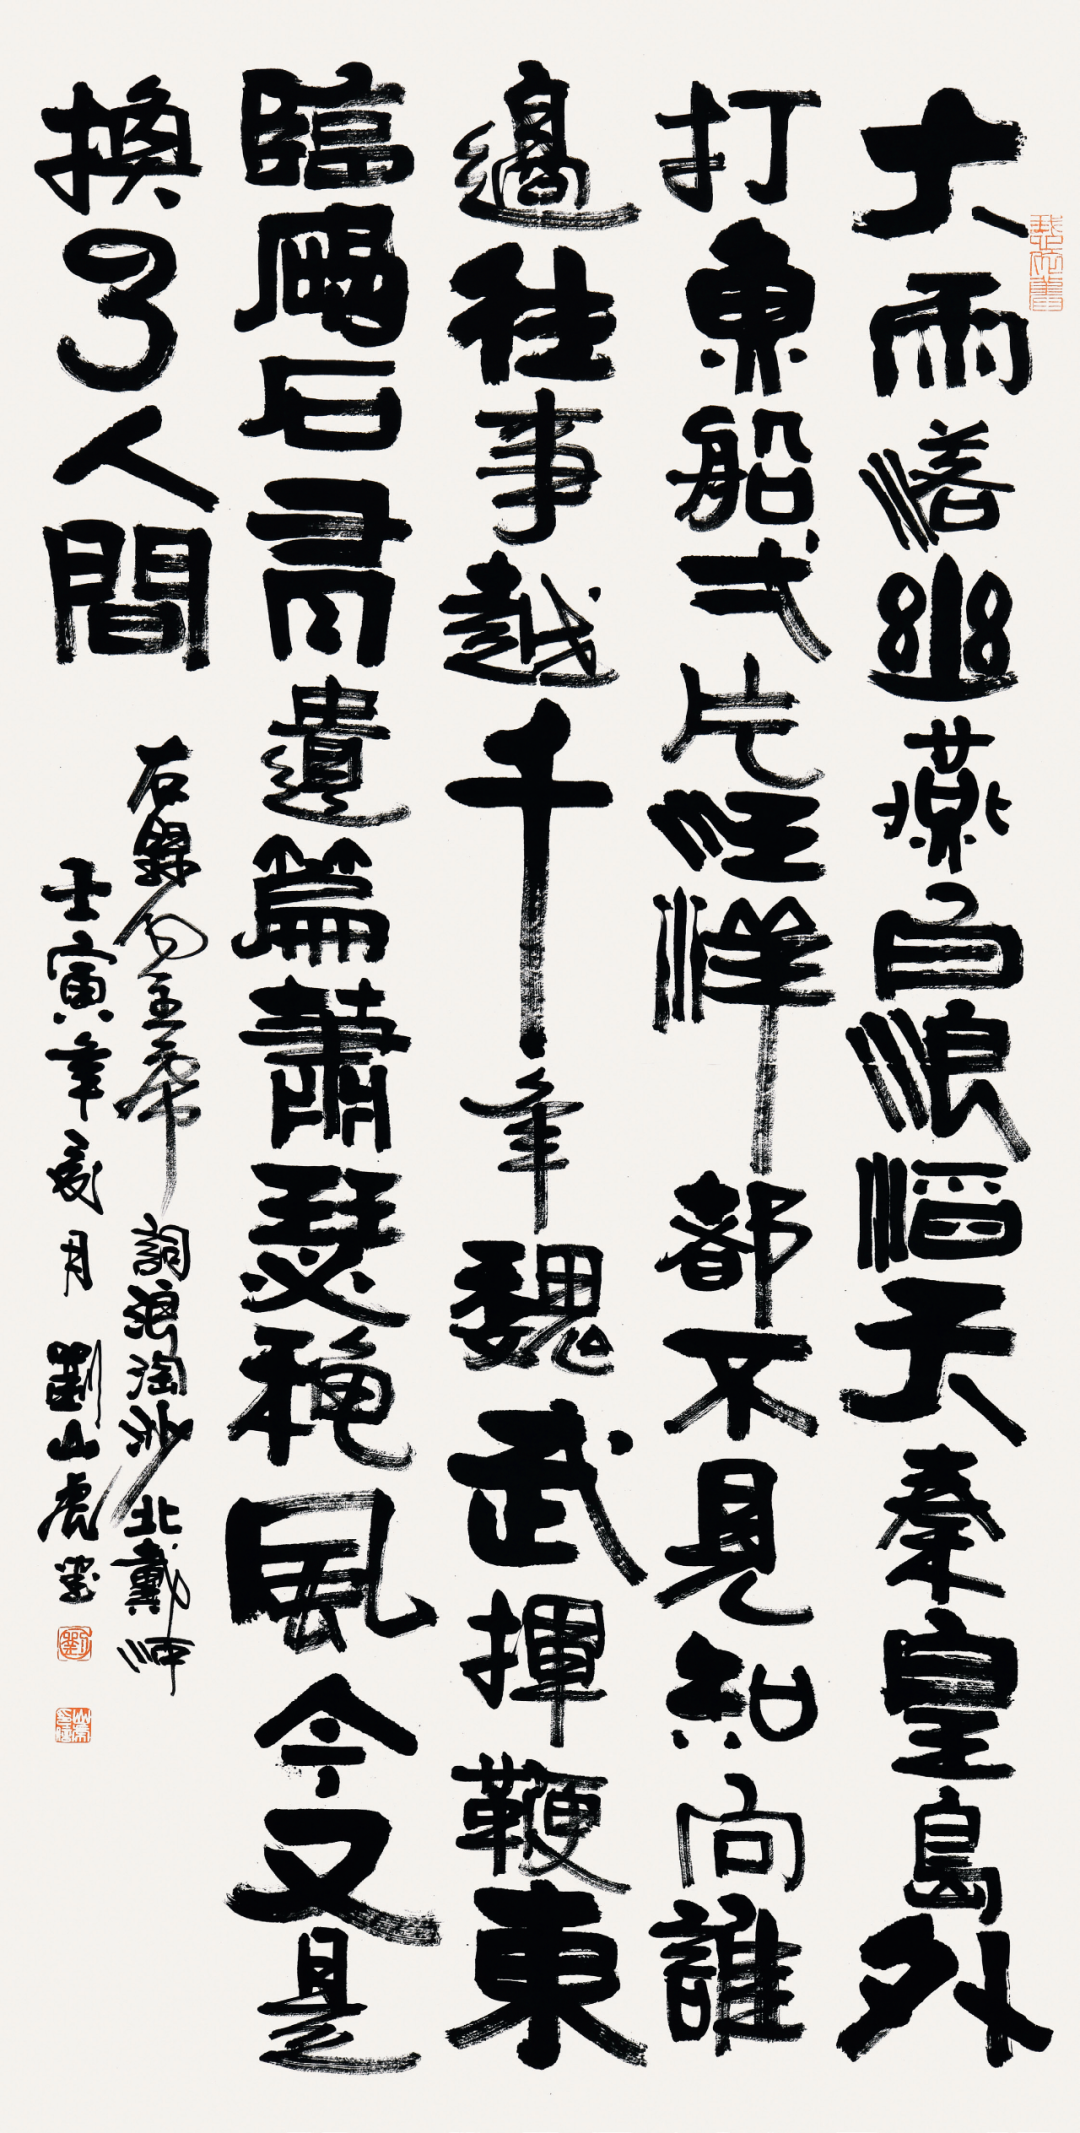 大雨落幽燕白浪滔天秦皇島外
打魚船弌片汪洋都不見知向誰
邊往事越千年魏武揮鞭東
臨碣石有遺篇蕭瑟秋風今又是
換了人間
右錄毛主席詞浪淘沙北戴河
壬寅年夏月劉山虎書